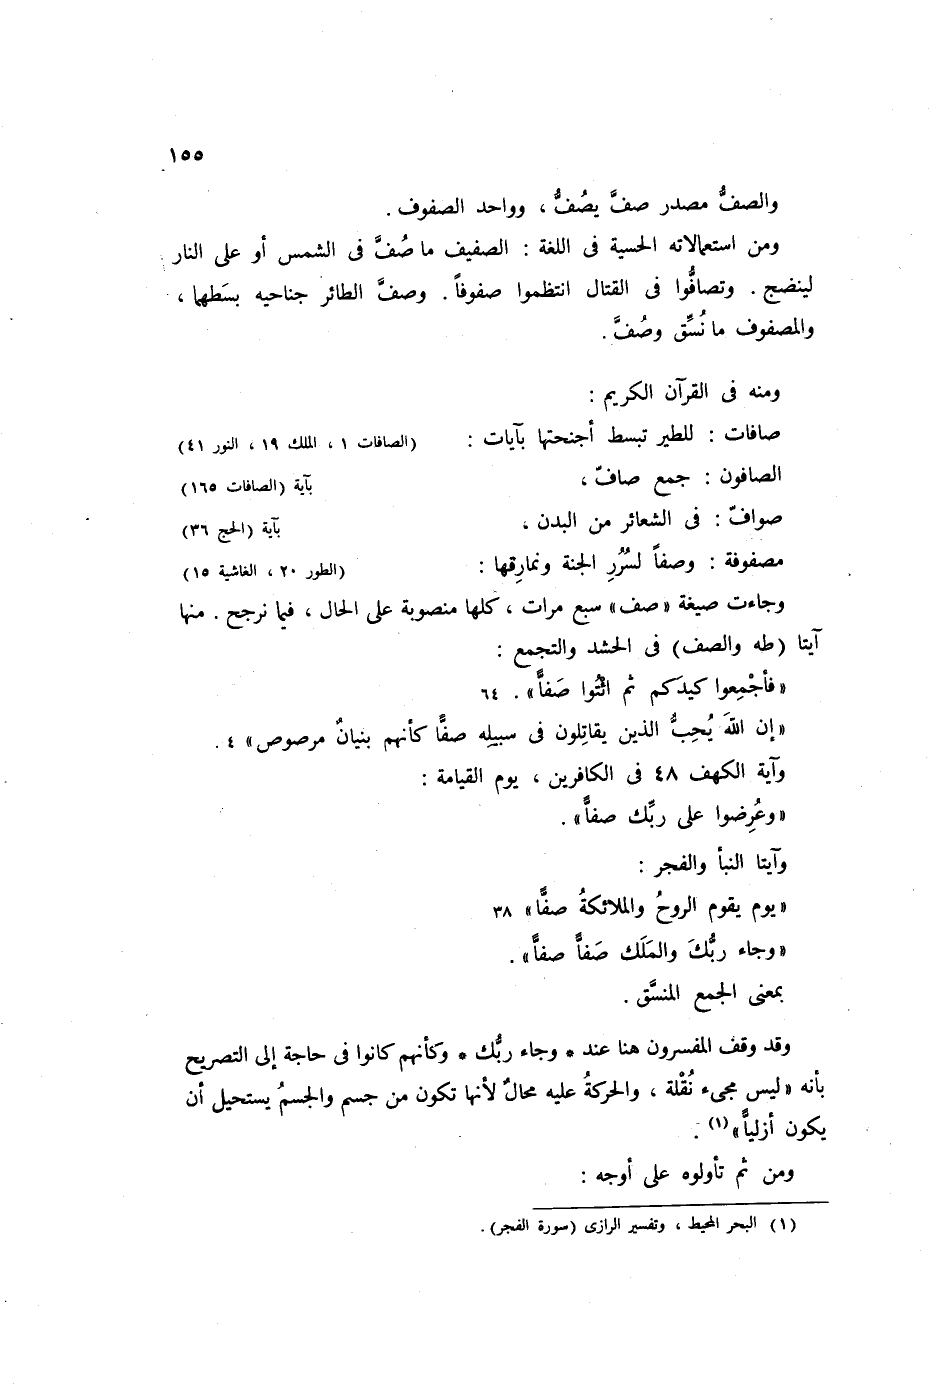 ١٥٥
والصفُّ مصدر صفَّ يصُفُّ ، وواحد الصفوف .
ومن استعمالاته الحسية فى اللغة : الصفيف ما صُفَّ فى الشمس أو على النار
لينضج . وتصافُّوا فى القتال انتظموا صفوفاً . وصفَّ الطائر جناحيه بسَطهما ،
والمصفوف ما نُسِّق وصُفَّ .
ومنه فى القرآن الكريم :
صافات : للطير تبسط أجنحتها بآيات : (الصافات ١ ، الملك ١٩ ، النور ٤١)
الصافون : جمع صافّ ، بآية (الصافات ١٦٥)
صوافّ : فى الشعائر من البدن ، بآية (الحج ٣٦)
مصفوفة : وصفاً لسُرُرِ الجنة ونمارِقها : (الطور ٢٠ ، الغاشية ١٥)
وجاءت صيغة «صف» سبع مرات ، كلها منصوبة على الحال ، فيما نرجح . منها
آيتا (طه والصف) فى الحشد والتجمع :
«فأجْمِعوا كيدَكم ثم ائْتُوا صَفاًّ» . ٦٤
«إن اللهَ يُحِبُّ الذين يقاتِلون فى سبيلِه صفًّا كأنهم بنيانٌ مرصوص» ٤ .
وآية الكهف ٤٨ فى الكافرين ، يوم القيامة :
«وعُرِضوا على ربِّك صفاًّ» .
وآيتا النبأ والفجر :
«يوم يقوم الروحُ والملائكةُ صفًّا» ٣٨
«وجاء ربُّكَ والمَلَك صَفاًّ صفاًّ» .
بمعنى الجمع المنسَّق .
وقد وقف المفسرون هنا عند * وجاء ربُّك * وكأنهم كانوا فى حاجة إلى التصريح
بأنه «ليس مجىء نُقْلة ، والحركةُ عليه محالٌ لأنها تكون من جسم والجسمُ يستحيل أن
يكون أزلياًّ»(١) .
ومن ثم تأولوه على أوجه :
(١) البحر المحيط ، وتفسير الرازى (سورة الفجر) .